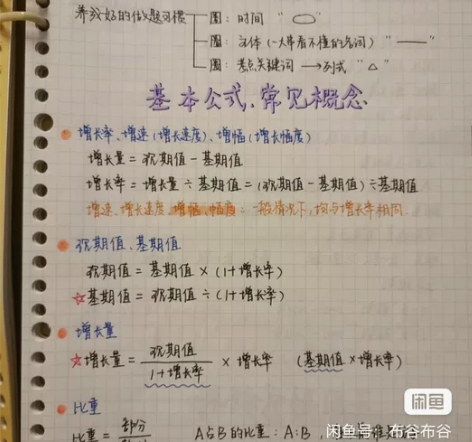 养成好的做题习惯 圈：时间 “ ”
圈：主体（一大串看不懂的名词）“ ”
圈：考点关键词 → 列式 “△”
基本公式、常见概念
增长率、增速（增长速度）、增幅（增长幅度）
增长量 = 现期值 - 基期值
增长率 = 增长量 ÷ 基期值 = (现期值 - 基期值) ÷ 基期值
增速、增长速度、增幅、幅度：一般情况下，均与增长率相同.
现期值、基期值
现期值 = 基期值 × (1+增长率)
☆基期值 = 现期值 ÷ (1+增长率)
增长量
☆增长量 = 现期值 / 1+增长率 × 增长率 (基期值 × 增长率)
比重
比重 = 部分
A占B的比重：A÷B，
闲鱼
闲鱼号：布谷布谷